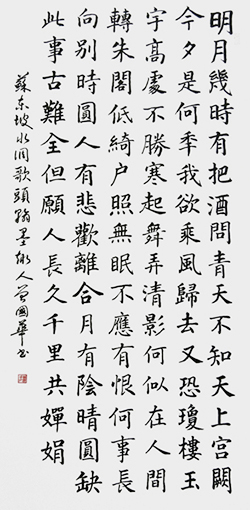 明月幾時有把酒問青天不知天上宮闕
今夕是何秊我欲乘風歸去又恐瓊樓玉
宇高處不勝寒起舞弄清影何似在人間
轉朱閣低綺户照無眠不應有恨何事長
向别時圓人有悲歡離合月有陰晴圓缺
此事古難全但願人長久千里共嬋娟
蘇东坡水調歌頭翰墨人曾國華书